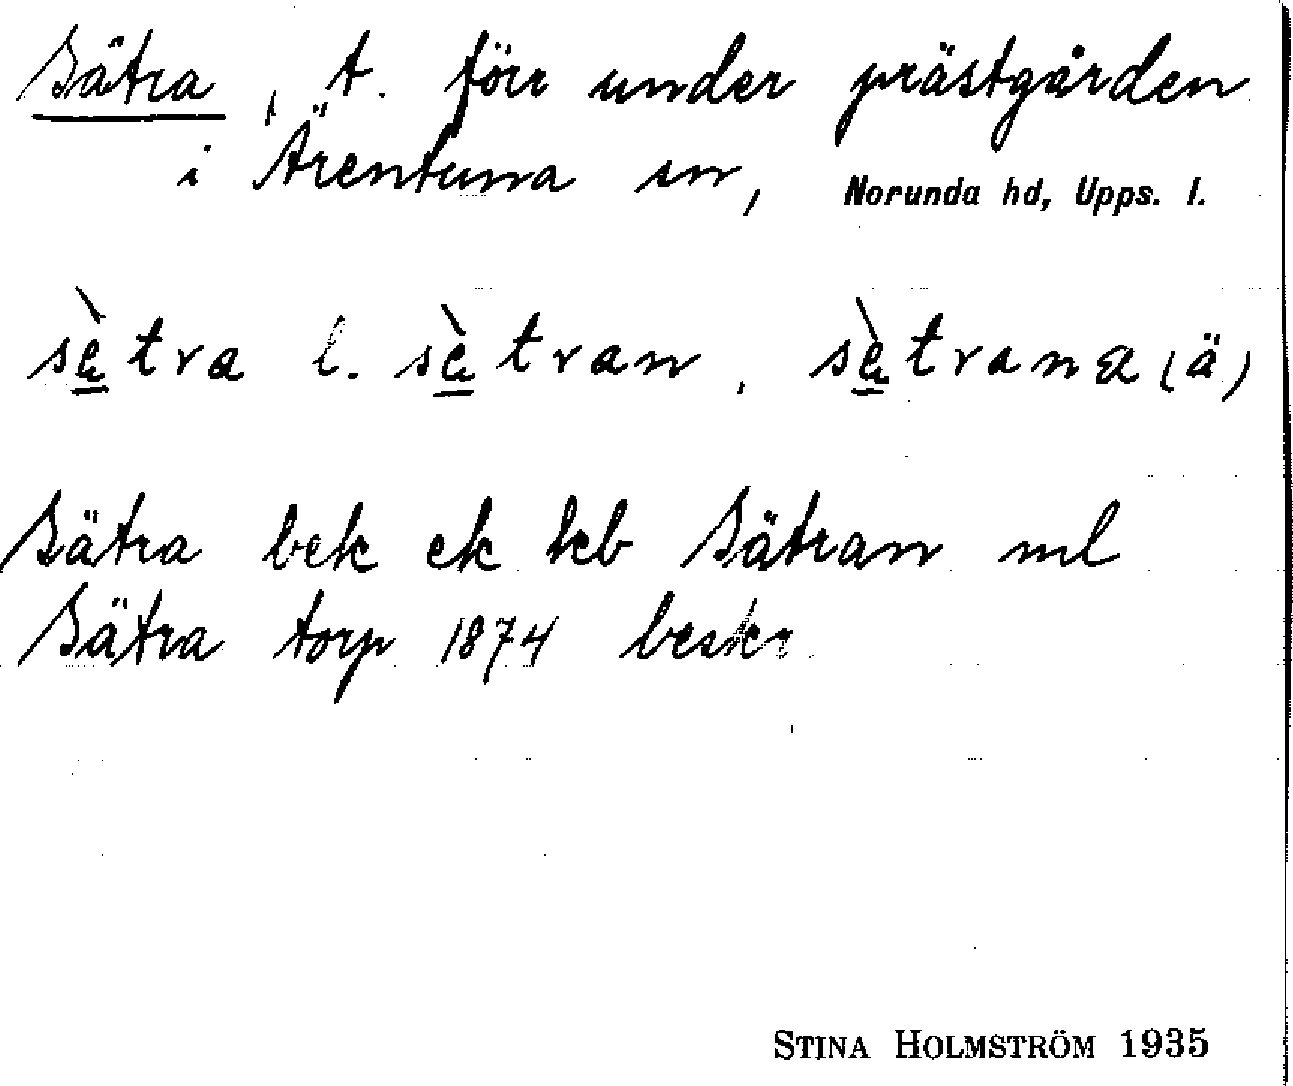 Sätra, t. förr under prästgården
i Ärentuna sn, Norunda hd, Upps. l.
sὲ̱tra l. sὲ̱tran, sὲ̱trana (ä)
Sätra bek ek kb Sätran ml
Sätra torp 1874 beskr
STINA HOLMSTRÖM 1935